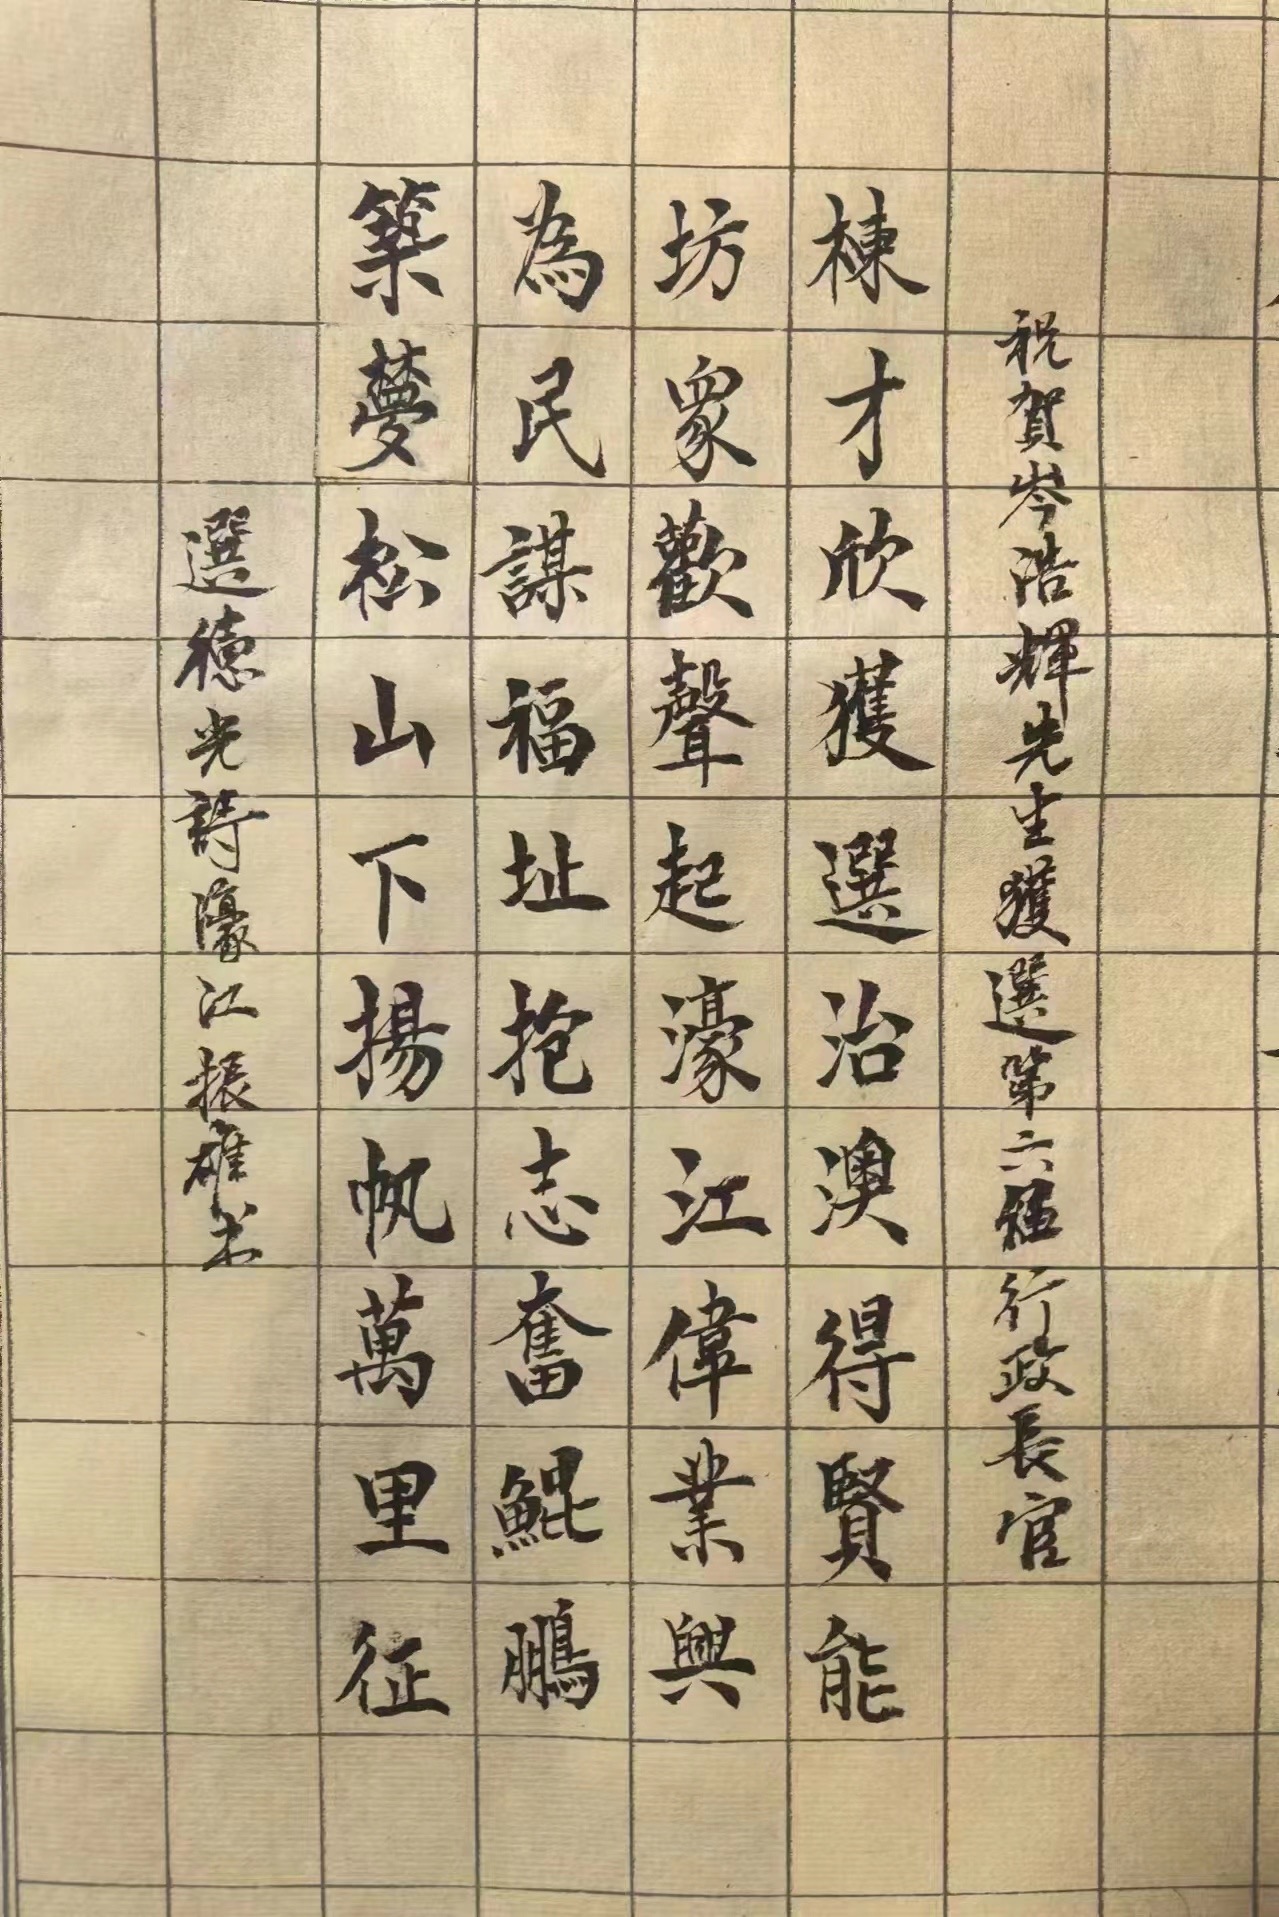 祝賀岑浩輝先生獲選第六任行政長官
棟才欣獲選治澳得賢能
坊眾歡聲起濠江偉業興
為民謀福址抱志奮鯤鵬
築夢松山下揚帆萬里征
選德光詩濠江振雄书